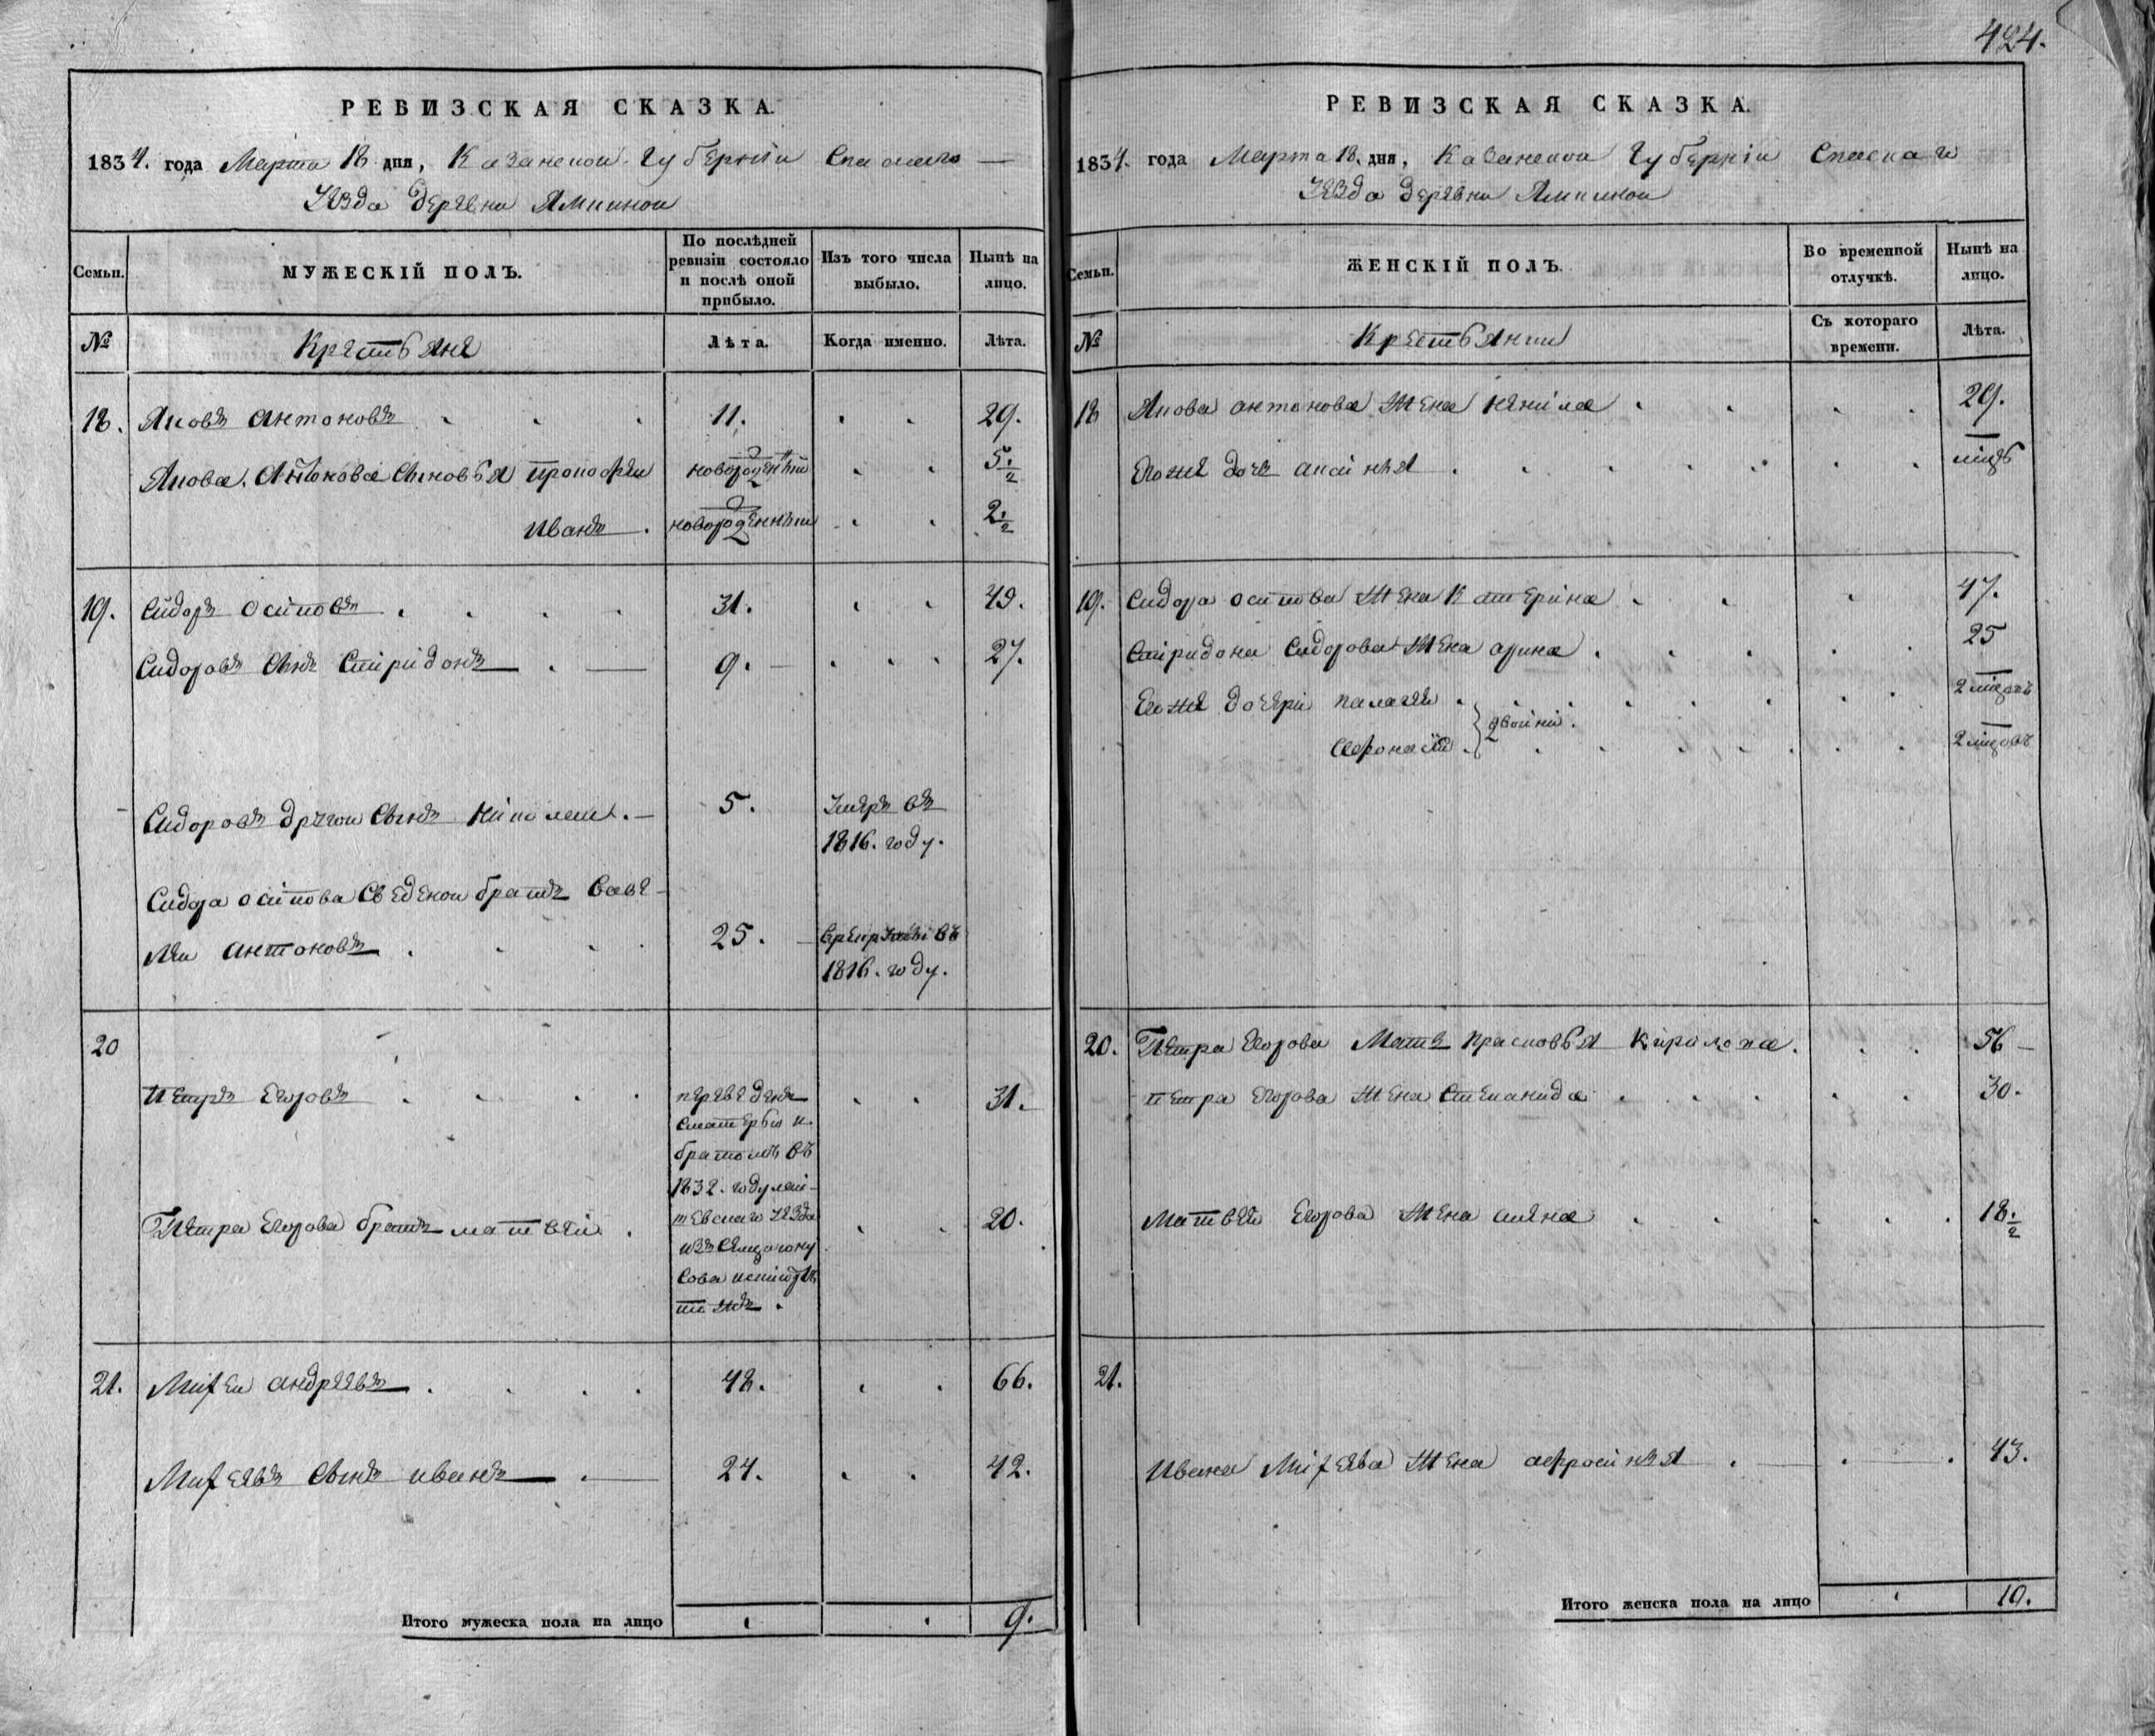 424.
РЕВИЗСКАЯ СКАЗКА.
1834. года Марта 18 дня, Казанской Губерніи Спаскаго
Уѣзда деревни Ямкиной
Семьи. МУЖЕСКІЙ ПОЛЪ. По послѣдней ревизіи состояло и послѣ оной прибыло. Изъ того числа выбыло. Нынѣ на лицо.
№ Крестьяне Лѣта. Когда именно. Лѣта.
18. Яковъ антоновъ 11. 29.
Якова Антонова сыновья прокофеи новорожденный 5 1/2
иванъ новорожденныи 2 1/2
19. Сидоръ осиповъ 31. 49.
Сидоровъ сынъ Спиридонъ 9. 27.
Сидоровъ другои сынъ 5. Умеръ въ
1816. году.
Сидора осипова Сведенои братъ Саве-
леи антоновъ 25. въ
1816. году.
20
петръ Егоровъ переведенъ 31.
сматерью и
братомъ въ
1832. году лаи-
шевскаго уезда
Петра Егорова братъ матвѣй 20.
изъ сельца
21. Михеи андреевъ 48. 66.
Михеевъ сынъ иванъ 24. 42.
Итого мужеска пола на лицо 9.
РЕВИЗСКАЯ СКАЗКА.
1834. года Марта 18. дня, Казанской Губерніи Спаскаго
Уѣзда деревни Ямкиной
Семьи. ЖЕНСКІЙ ПОЛЪ. Во временной отлучкѣ. Нынѣ на лицо.
№ Крестьянки Съ котораго времени. Лѣта.
18 Якова антонова жена ненила 29.
Егоже дочь аксинья
19. Сидора осипова жена Катерина 47.
Спиридона Сидорова жена арина 25
Егоже дочери палагея 2 мѣсецовъ
двойни.
Афонасия 2 мѣсецовъ
20. Петра Егорова Мать прасковья Кирилова 56
петра Егорова жена Степанида 30.
Матвея Егорова жена алена 18 1/2
21.
Ивана Михеева жена афросинья 43.
Итого женска пола на лицо 10.